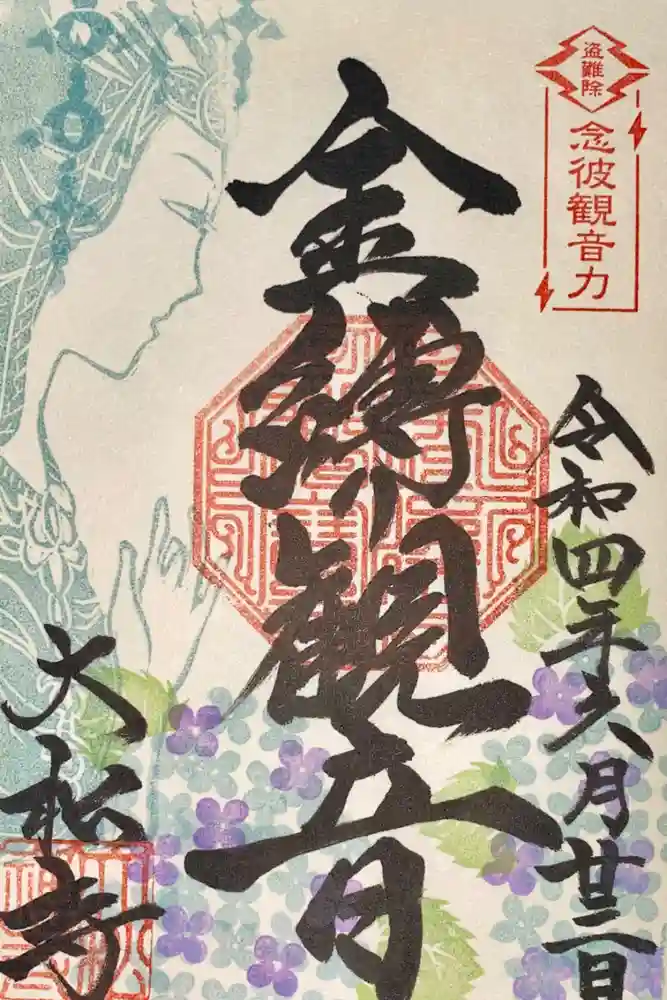 盗難除
念彼観音力
令和四年六月廿三日
金縛り観音
大松寺